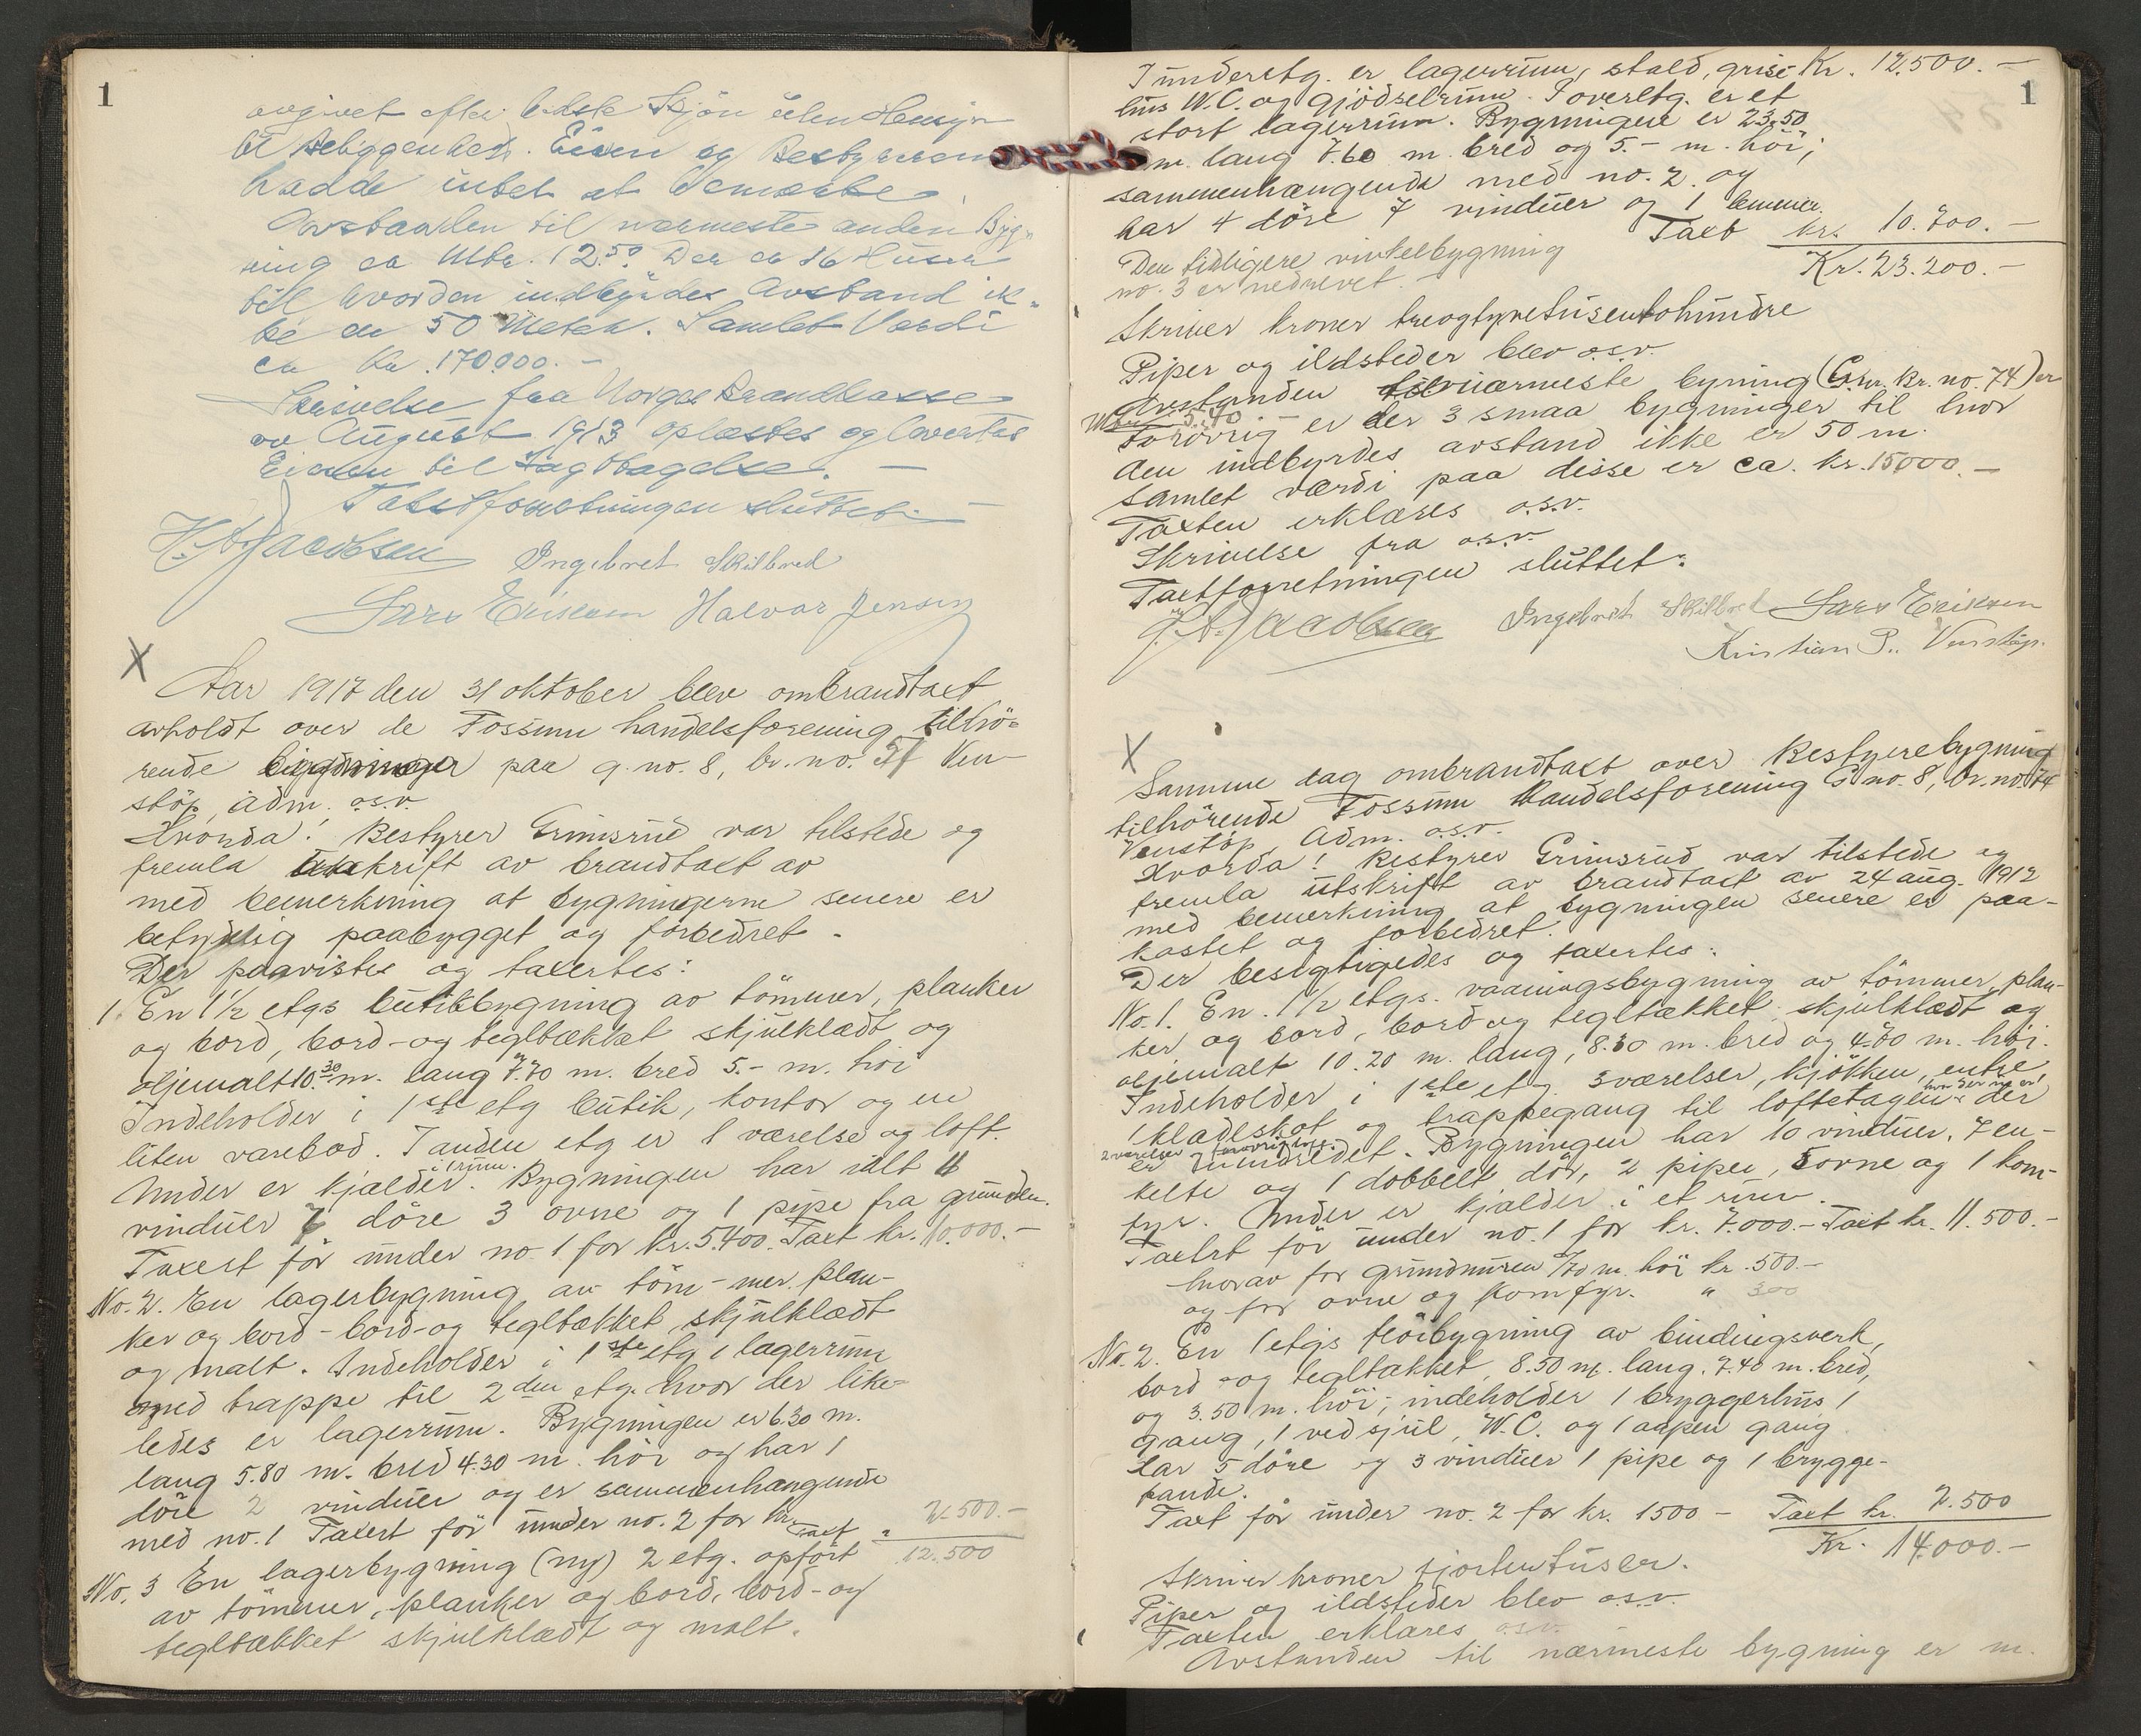 1
avgivet efter bedste Skjön uten Hensyn
til Beliggenhed. Eieren og Bestyreren
hadde intet at bemærke
Avstanden til nærmeste anden Byg-
ning ca Mtr. 12.50. Der er 16 Huser
til hvorden indbyrdes Avstand ik-
ke er 50 Meter. Samlet Værdi
ca Kr. 170000.-
Skrivelse fra Norges Brandkasse
av August 1913 oplæstes og levertes
Eieren til Iagttagelse. -
Taxtforretningen sluttet. -
H. A. Jacobsen Ingebret Skilbred
Lars Eriksen Halvor Jensen
X
Aar 1917 den 31 oktober blev ombrandtaxt
avholdt over de Fossum handelsforening tilhö-
rende bygninger paa g. no. 8, br. no. Ven-
stöp, adm. o.s.v.
Hvorda! Bestyrer Grimsrud var tilstede og
fremla utskrift av brandtaxt av
med bemerkning at bygningerne senere er
betydelig paabygget og forbedret.
Der paavistes og taxertes:
1. En 1 1/2 etgs butikbygning av tömmer, planker
og bord, bord- og tegltækket skjulklædt og
oljemalt 10.30 m. lang 7.70 m. bred 5.- m. höi
Indeholder i 1ste etg butik, kontor og en
liten varebod. I anden etg er 1 værelse og loft.
Under er kjælder i 1 rum. Bygningen har ialt 11
vinduer 7 döre 3 ovne og 1 pipe fra grunden.
Taxert för under no. 1 for kr. 5.400. Taxt kr. 10.000.-
No. 2. En lagerbygning av töm-mer. plan-
ker og bord - bord- og tegltækket, skjulklædt
og malt. Indeholder i 1ste etg 1 lagerrum
med trappe til 2den etg. hvor der like-
ledes er lagerrum. Bygningen er 6.30 m.
lang 5.80 m. bred 4.30 m. höi og har 1
döre 2 vinduer og er sammenhængende
med no. 1 Taxert för under no. 2 for kr. Taxt " 2.500.-
No. 3 En lagerbygning (ny) 2 etg. opfört 12.500
av tömmer, planker og bord, bord- og
tegltækket skjulklædt og malt.
1
I underetg. er lagerrum, stald, grise- Kr. 12.500.-
hus W.C. og gjödselrum. I overetg. er et
stort lagerrum. Bygningen er 23.50
m. lang 7.60 m. bred og 5.- m. höi;
sammenhængende med no. 2. og
har 4 döre 7 vinduer og 1 lemmer.
Taxt kr. 10.700.-
Den tidligere vinkelbygning Kr. 23.200.-
no. 3 er nedrevet.-
Skriver kroner treogtyvetusentohundre
Piper og ildsteder blev o.s.v.
Avstanden til nærmeste byning (G.nr. br. no. 74) er
Mtr. 5.40
Forövrig er der 3 smaa bygninger til hvor
den indbyrdes avstand ikke er 50 m.
Samlet værdi paa disse er ca. kr. 15000.-
Taxten erklæres o.s.v.
Skrivelse fra o.s.v.
Taxtforretningen sluttet.
H. A. Jacobsen Ingebret Skilbred Lars Eriksen
Kristian P. Venstöp.
X
Samme dag ombrandtaxt over Bestyrerbygning
tilhörende Fossum Handelsforening G.no. 8, br. no. 74
Venstöp, Adm. o.s.v.
Hvorda! Bestyrer Grimsrud var tilstede og
fremla utskrift av brandtaxt av 24 aug. 1912
med bemerkning at bygningen senere er paa-
kostet og forbedret.
Der besigtigedes og taxertes:
No. 1. En. 1 1/2 etgs. vaaningsbygning av tömmer, plan-
ker og bord, bord- og tegltækket, skjulklædt og
oljemalt 10.20 m. lang, 8.30 m. bred og 4.70 m. höi.
Indeholder i 1ste etg. 3 værelser, kjökken, entre,
1 klædeskot og trappegang til loftetagen hvor der nu er
2 værelser forövrig
er uindredet. Bygningen har 10 vinduer, 7 en-
kelte og 1 dobbelt dör, 2 piper, 5 ovne og 1 kom-
fyr. Under er kjælder i et rum.
Taxtert för under no. 1 for kr. 7.000.- Taxt kr. 11.500.-
hvorav for grundmuren 1.70 m. höi kr. 500.-
og for ovne og komfyr. " 300
No. 2. En 1 etgs höibygning av bindingsverk,
bord- og tegltækket, 8.50 m. lang, 7.40 m. bred,
og 3.50 m. höi; indeholder 1 bryggerhus 1
gang, 1 vedsjul, W.C. og 1 aapen gang
har 5 döre og 3 vinduer 1 pipe og 1 brygge-
pande.
Taxt för under no. 2 for kr. 1500 - Taxt kr. 2.500
Kr. 14.000.-
Skriver kroner fjortentusen.
Piper og ildsteder blev o.s.v.
Taxten erklæres o.s.v.
Avstanden til nærmeste bygning er m.